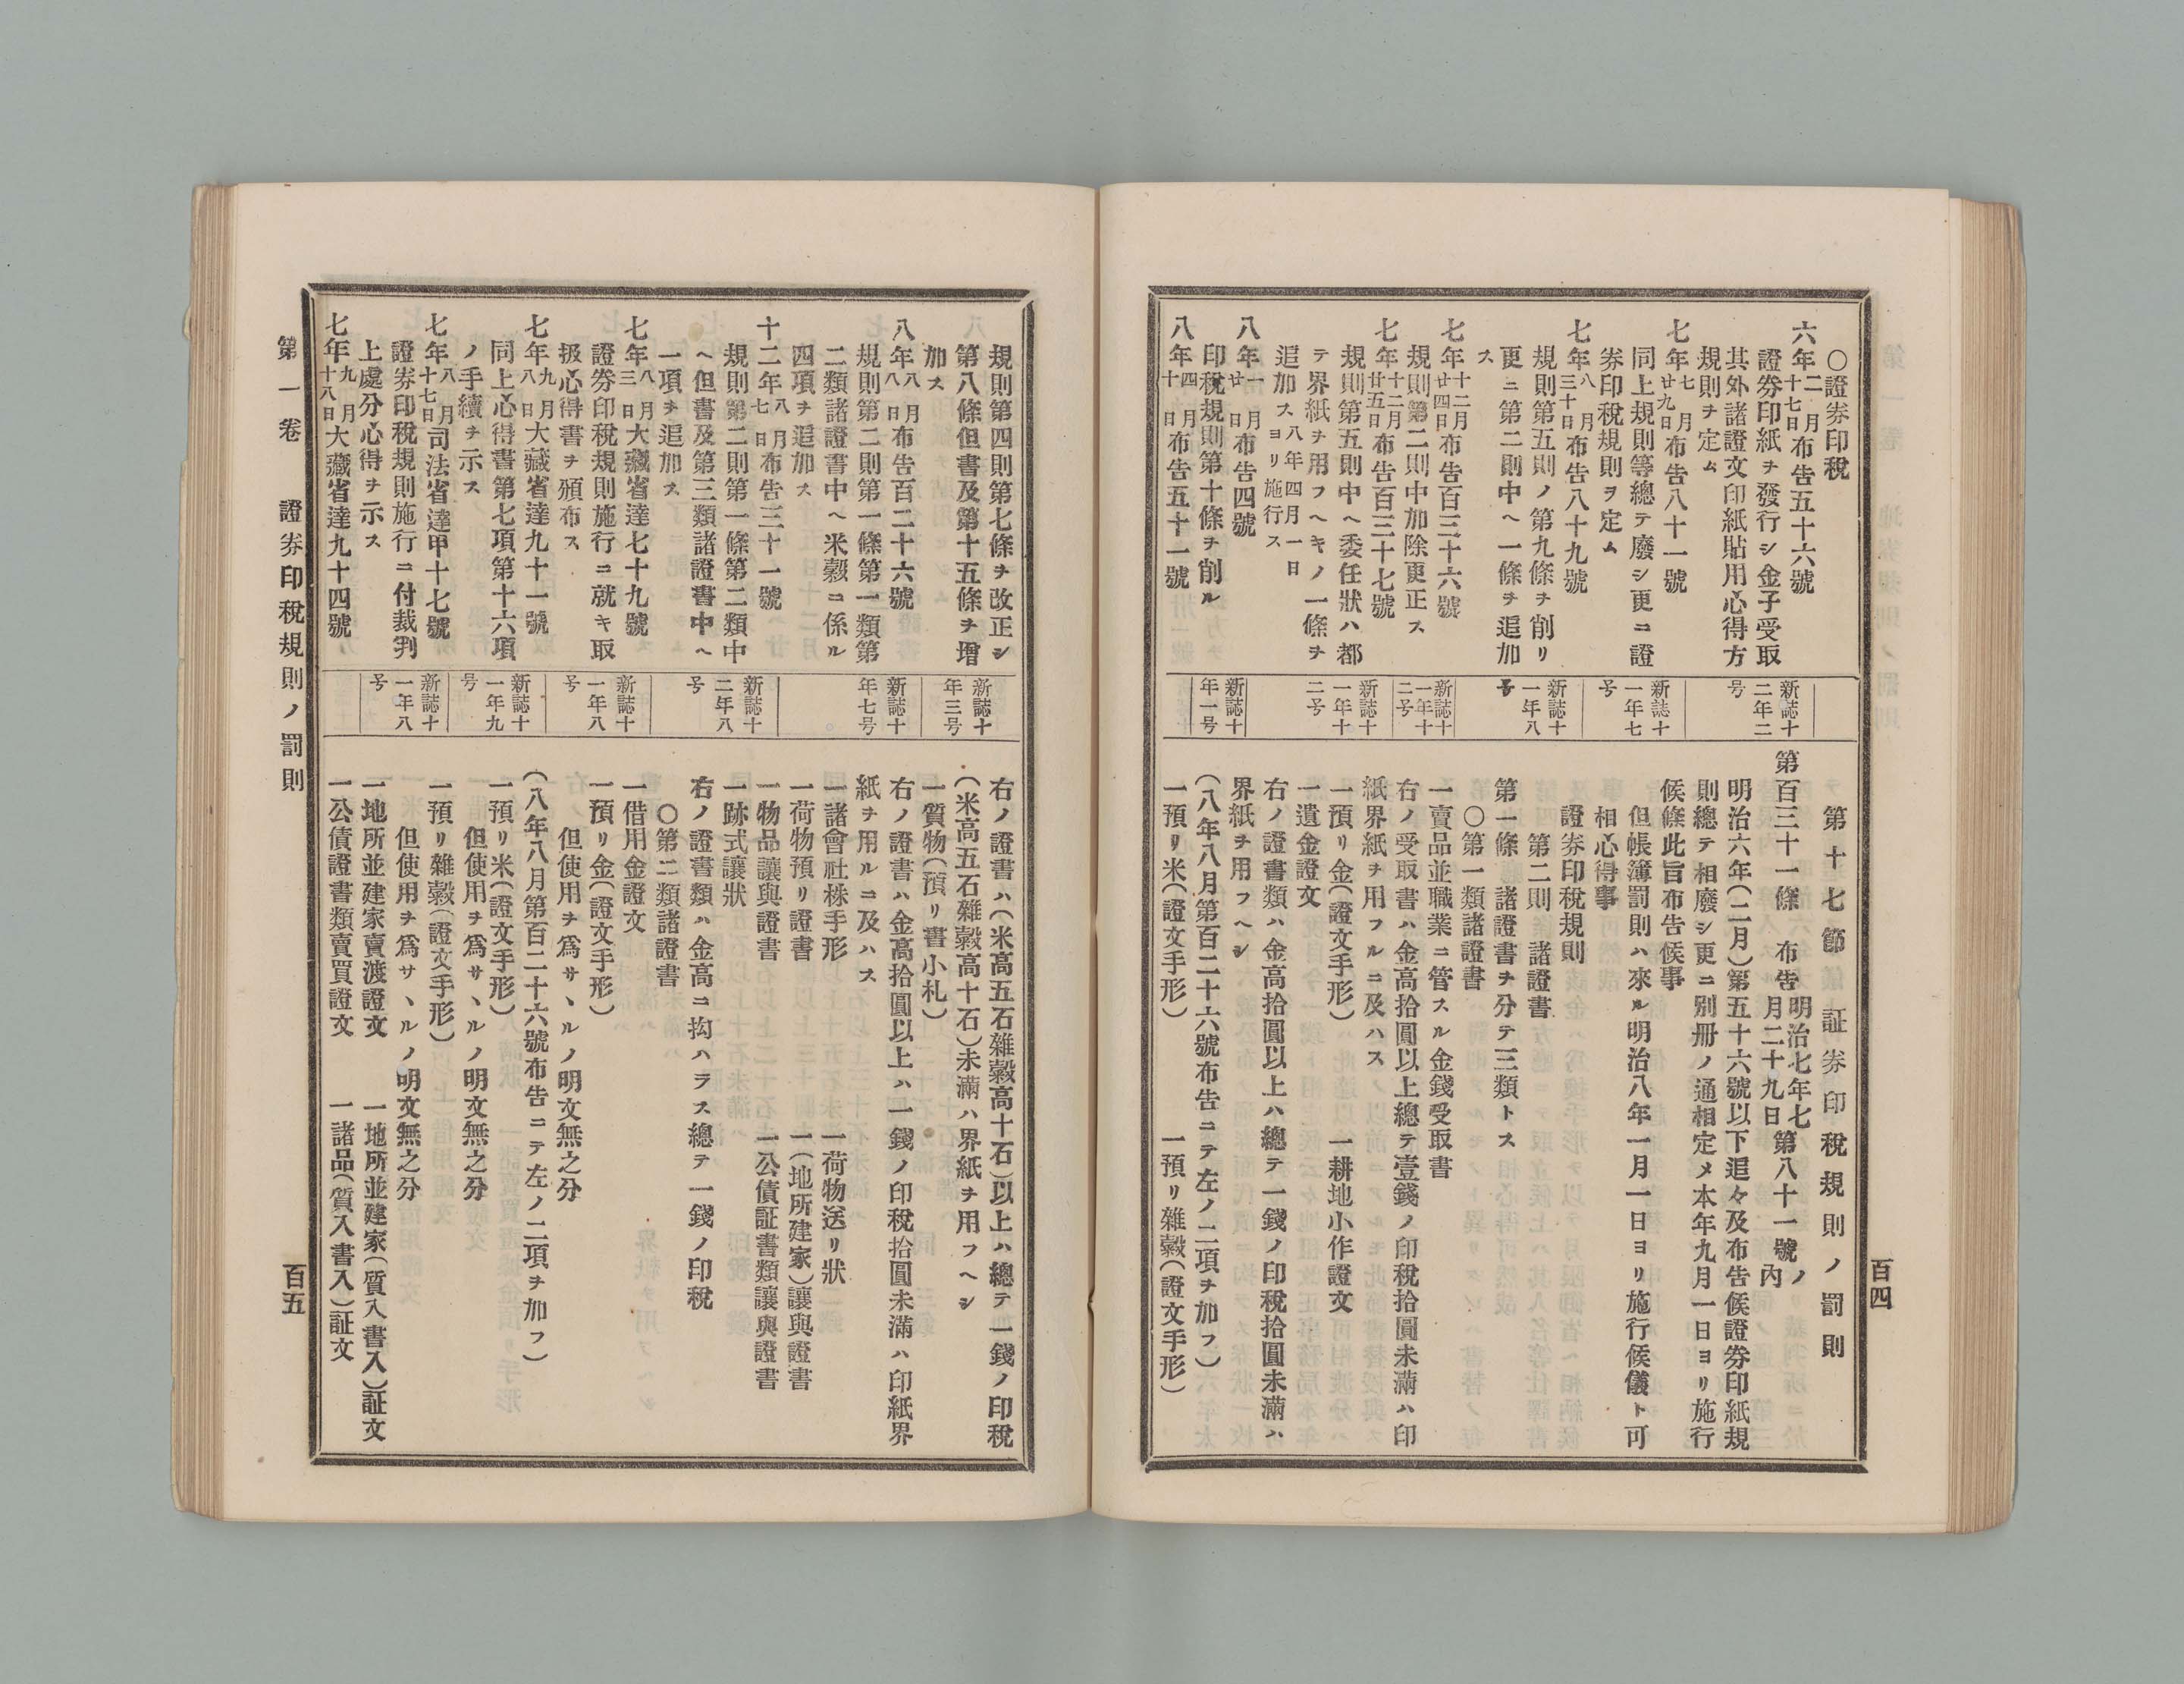 百四
○證券印稅
六年二月十七日布告五十六號
證券印紙ヲ發行シ金子受取
其外諸證文印紙貼用心得方
規則ヲ定ム
七年七月廿九日布告八十一號
同上規則等總テ廢シ更ニ證
券印稅規則ヲ定ム
七年八月三十日布告八十九號
規則第五則ノ第九條ヲ削リ
更ニ第二則中ヘ一條ヲ追加
ス
七年十二月廿四日布告百三十六號
規則第二則中加除更正ス
七年十二月廿五日布告百三十七號
規則第五則中ヘ委任狀ハ都
テ界紙ヲ用フヘキノ一條ヲ
追加ス八年四月一日ヨリ施行ス
八年一月廿日布告四號
印稅規則第十條ヲ削ル
八年四月十日布告五十一號
新誌十二年二号
新誌十一年七号
新誌十一年八号
新誌十一年十二号
新誌十一年十二号
新誌十年一号
第十七節　証券印稅規則ノ罰則
第百三十一條　布告明治七年七月二十九日第八十一號ノ內
明治六年(二月)第五十六號以下追々及布告候證券印紙規
則總テ相廢シ更ニ別冊ノ通相定メ本年九月一日ヨリ施行
候條此旨布告候事
但帳簿罰則ハ來ル明治八年一月一日ヨリ施行候儀ト可
相心得事
證券印稅規則
第二則　諸證書
第一條　諸證書ヲ分テ三類トス
○第一類諸證書
一賣品並職業ニ管スル金錢受取書
右ノ受取書ハ金高拾圓以上總テ壹錢ノ印稅拾圓未滿ハ印
紙界紙ヲ用フルニ及ハス
一預リ金(證文手形)　一耕地小作證文
一遺金證文
右ノ證書類ハ金高拾圓以上ハ總テ一錢ノ印稅拾圓未滿ハ
界紙ヲ用フヘシ
(八年八月第百二十六號布告ニテ左ノ二項ヲ加フ)
一預リ米(證文手形)　一預リ雜穀(證文手形)
規則第四則第七條ヲ改正シ
第八條但書及第十五條ヲ增
加ス
八年八月八日布告百二十六號
規則第二則第一條第一類第
二類諸證書中ヘ米穀ニ係ル
四項ヲ追加ス
十二年八月七日布告三十一號
規則第二則第一條第二類中
ヘ但書及第三類諸證書中ヘ
一項ヲ追加ス
七年八月三日大藏省達七十九號
證券印稅規則施行ニ就キ取
扱心得書ヲ頒布ス
七年九月八日大藏省達九十一號
同上心得書第七項第十六項
ノ手續ヲ示ス
七年八月十七日司法省達甲十七號
證券印稅規則施行ニ付裁判
上處分心得ヲ示ス
七年九月十八日大藏省達九十四號
新誌十年三号
新誌十年七号
新誌十二年八号
新誌十一年八号
新誌十一年九号
新誌十一年八号
右ノ證書ハ(米高五石雜穀高十石)以上ハ總テ一錢ノ印稅
(米高五石雜穀高十石)未滿ハ界紙ヲ用フヘシ
一質物(預リ書小札)
右ノ證書ハ金高拾圓以上ハ一錢ノ印稅拾圓未滿ハ印紙界
紙ヲ用ルニ及ハス
一諸會社株手形　一荷物送リ狀
一荷物預リ證書　一(地所建家)讓與證書
一物品讓與證書　一公債証書類讓與證書
一跡式讓狀
右ノ證書類ハ金高ニ拘ハラス總テ一錢ノ印稅
○第二類諸證書
一借用金證文
一預リ金(證文手形)
但使用ヲ爲サヽルノ明文無之分
(八年八月第百二十六號布告ニテ左ノ二項ヲ加フ)
一預リ米(證文手形)
但使用ヲ爲サヽルノ明文無之分
一預リ雜穀(證文手形)
但使用ヲ爲サヽルノ明文無之分
一地所並建家賣渡證文　一地所並建家(質入書入)証文
一公債證書類賣買證文　一諸品(質入書入)証文
第一卷　證券印稅規則ノ罰則
百五